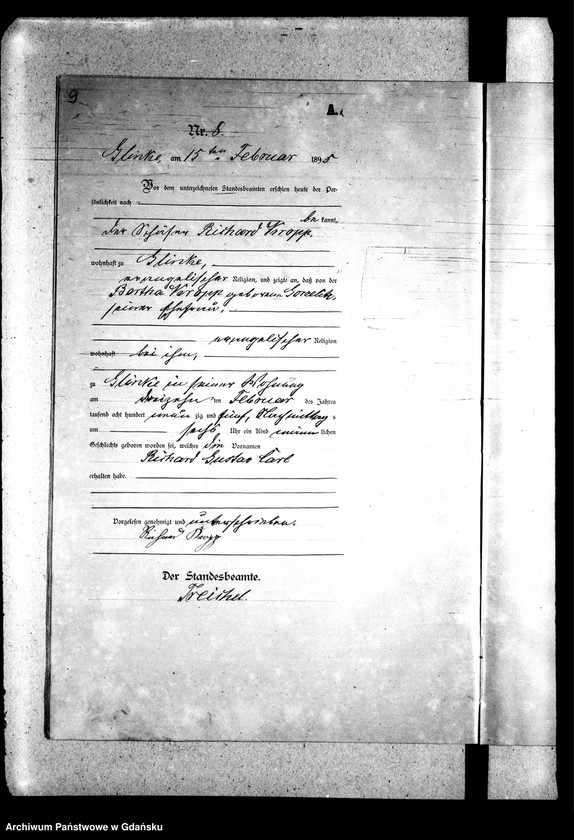 9
A.
Nr. 8.
Glinke, am 15 ten Februar 1895
Vor dem unterzeichneten Standesbeamten erschien heute der Per-
sönlichkeit nach
be kannt,
der Schäfer Richard Kropp.
wohnhaft zu Glinke,
evangelischer Religion, und zeigte an, daß von der
Bertha Kropp geborenen
seiner Ehefrau,
evangelischer Religion
wohnhaft bei ihm,
zu Glinke in seiner Wohnung
am dreizehn ten Februar des Jahres
tausend acht hundert neun zig und fünf, Nachmittags
um sechs Uhr ein Kind männ lichen
Geschlechts geboren worden sei, welches die Vornamen
Richard Gustav Carl
erhalten habe.
Vorgelesen, genehmigt und unterschrieben.
Richard Kropp
Der Standesbeamte.
Treichel.
Archiwum Państwowe w Gdańsku